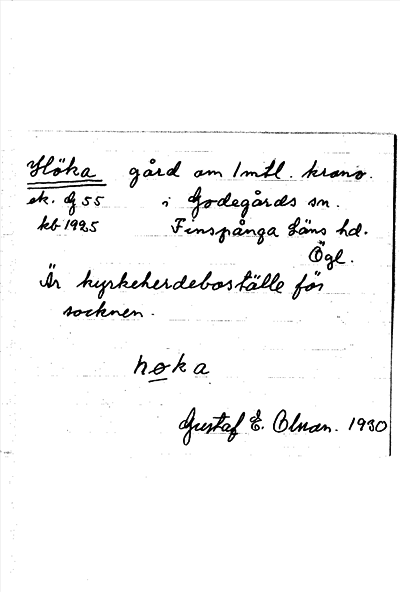 Höka gård om 1 mtl. krono.
ek. G 55 i Godegårds sn.
kb 1925 Finspånga Läns hd.
Ögl.
Är kyrkoherdeboställe för
socknen.
høka
Gustaf E. Olson. 1930